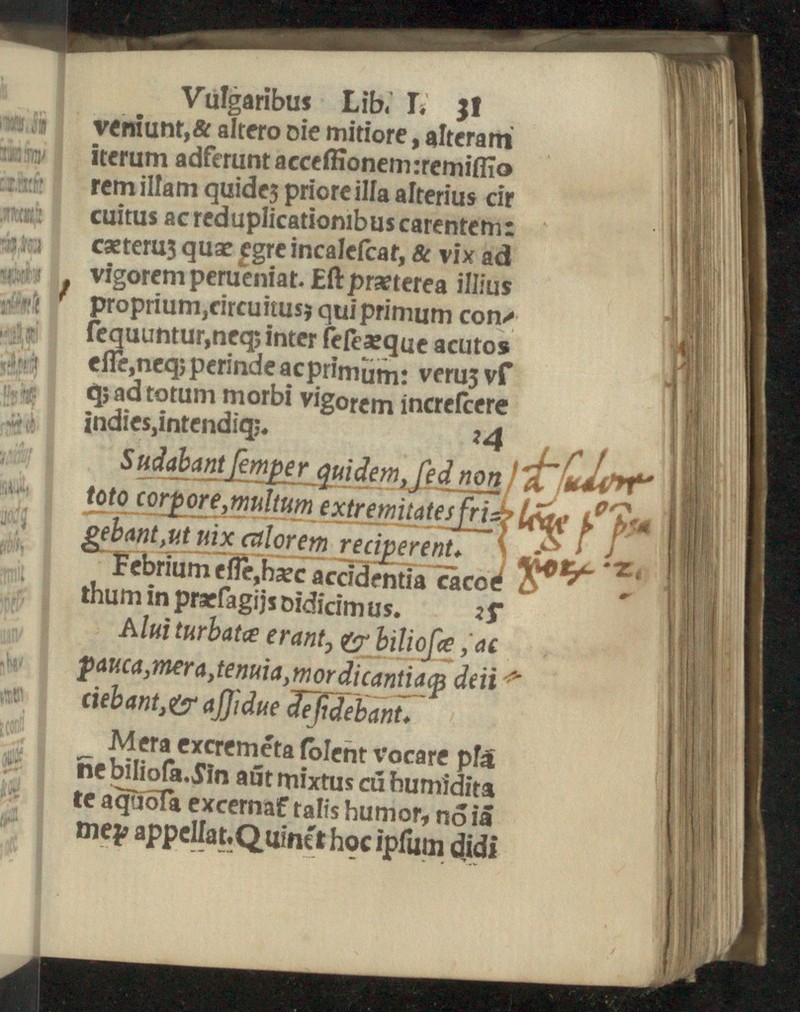 Vulgaribus Lib. I. 31
veniunt, & altero die mitiore, alteram
iterum adferunt acceſſionem: remiſſio
rem illam quideʒ priore illa alterius cir
cuitus ac reduplicationibus carentem:
cæteruʒ quæ egre incaleſcat, & vix ad
vigorem perueniat. Eſt præterea illius
proprium, circuituſʒ qui primum con⸗
ſequuntur, neqʒ inter ſeſe æque acutos
eſſe, neqʒ perinde ac primum: veruʒ vſ
qʒ ad totum morbi vigorem increſcere
indies, intendiqʒ.
24
Sudabant ſemper quidem, ſed non
toto corpore, multum extremitates fri⸗
gebant, ut uix calorem reciperent.
Febrium eſſe, hæc accidentia cacoe
thum in præſagijs didicimus.
25
Alui turbatæ erant, & bilioſæ, ac
pauca, mera, tenuia, mordicantiaqʒ deii
ciebant, & aſſidue deſidebant.
Mera excremēta ſolent vocare plā
ne bilioſa. Sin aūt mixtus cū humidita
te aquoſa excernat talis humor, nō iā
meꝝ appellat. Quinēt hoc ipſum didi
de ſudore
lege